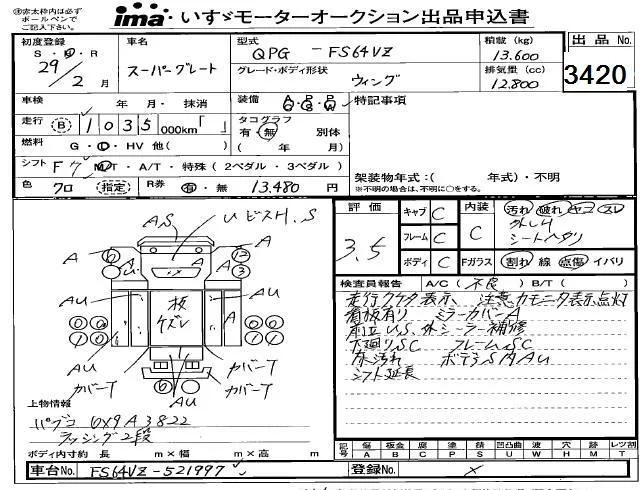 ※赤太枠内は必ず
ボールペンで
ご記入下さい
ima いすゞモーターオークション出品申込書
初度登録 車名 型式 積載(kg) 出品No.
S・H・R スーパーグレート QPG - FS64VZ 13.600
29年 2月 グレード・ボディ形状 ウィング 排気量(cc) 12.800 3420
車検 年 月・ 抹消 装備 特記事項
走行 B 1035 000km「 」 タコグラフ 有・無 別体
燃料 G・D・HV 他( ) ( 年 月)
シフト F7 M/T・A/T・特殊(2ペダル・3ペダル) 架装物年式:( 年式)・不明
色 クロ 指定 R券 有・無 13.480円 ※不明の場合は、不明に○をする。
評価 3.5
キャブ C 内装 C 汚れ 破れ
フレーム C シートヘタリ
ボディ C Fガラス 割れ 線 点傷 イバリ
AS
A
A
A
AU
AU
板
ケズレ
A
カバーT
カバーT
AU
AU
検査員報告 A/C(不良) B/T( )
走行クラタ表示 注意カモニタ表示点灯
看板有り ミラーカバーA
前立U.S. 外シーラー補修
下廻りSC フレームSC
外汚れ
シフト延長
上物情報
パブコ 6X9A3822
ラッシング2段
ボディ内寸約 長 m×幅 m×高 m
記号 傷 板金 腐 塗 錆 凹凸曲 波 穴 跡 レツ割
A B C P S U W H M T
車台No. FS64VZ-521997 登録No.